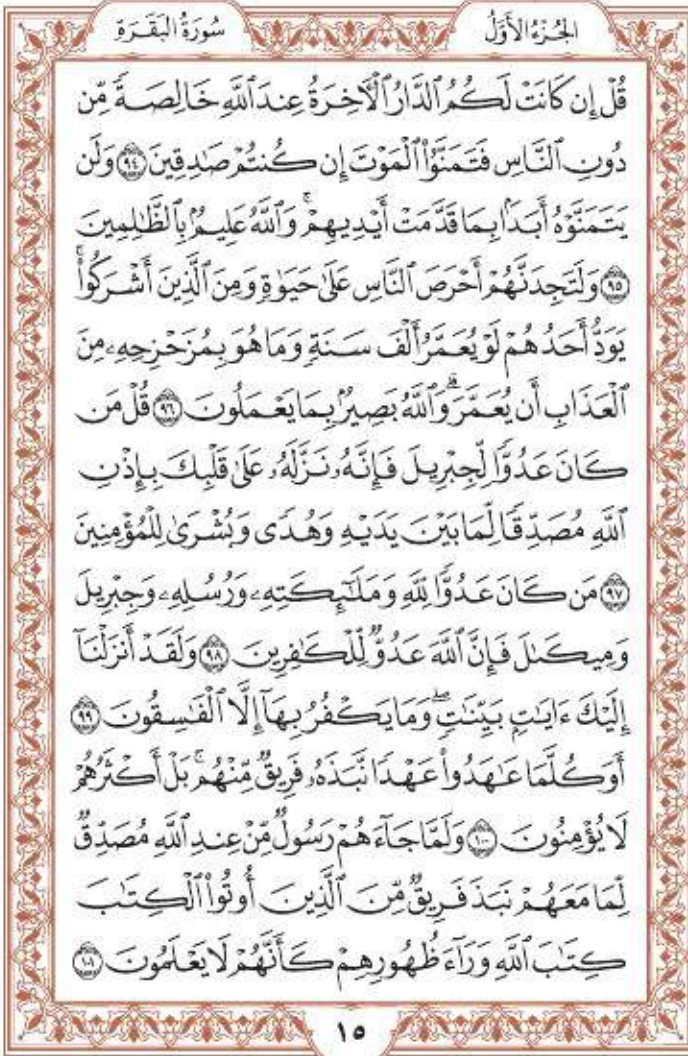 سُورَةُ البَقَرَةِ
الجُزْءُ الأَوَّلُ
قُلْ إِن كَانَتْ لَكُمُ ٱلدَّارُ ٱلْأَخِرَةُ عِندَ ٱللَّهِ خَالِصَةً مِّن
دُونِ ٱلنَّاسِ فَتَمَنَّوُا۟ ٱلْمَوْتَ إِن كُنتُمْ صَٰدِقِينَ ٩٤ وَلَن
يَتَمَنَّوْهُ أَبَدًۢا بِمَا قَدَّمَتْ أَيْدِيهِمْ ۗ وَٱللَّهُ عَلِيمٌۢ بِٱلظَّٰلِمِينَ
٩٥ وَلَتَجِدَنَّهُمْ أَحْرَصَ ٱلنَّاسِ عَلَىٰ حَيَوٰةٍ وَمِنَ ٱلَّذِينَ أَشْرَكُوا۟ ۚ
يَوَدُّ أَحَدُهُمْ لَوْ يُعَمَّرُ أَلْفَ سَنَةٍ وَمَا هُوَ بِمُزَحْزِحِهِۦ مِنَ
ٱلْعَذَابِ أَن يُعَمَّرَ ۗ وَٱللَّهُ بَصِيرٌۢ بِمَا يَعْمَلُونَ ٩٦ قُلْ مَن
كَانَ عَدُوًّا لِّجِبْرِيلَ فَإِنَّهُۥ نَزَّلَهُۥ عَلَىٰ قَلْبِكَ بِإِذْنِ
ٱللَّهِ مُصَدِّقًا لِّمَا بَيْنَ يَدَيْهِ وَهُدًى وَبُشْرَىٰ لِلْمُؤْمِنِينَ
٩٧ مَن كَانَ عَدُوًّا لِّلَّهِ وَمَلَٰٓئِكَتِهِۦ وَرُسُلِهِۦ وَجِبْرِيلَ
وَمِيكَىٰلَ فَإِنَّ ٱللَّهَ عَدُوٌّ لِّلْكَٰفِرِينَ ٩٨ وَلَقَدْ أَنزَلْنَآ
إِلَيْكَ ءَايَٰتٍۭ بَيِّنَٰتٍ ۖ وَمَا يَكْفُرُ بِهَآ إِلَّا ٱلْفَٰسِقُونَ ٩٩
أَوَكُلَّمَا عَٰهَدُوا۟ عَهْدًا نَّبَذَهُۥ فَرِيقٌ مِّنْهُم ۚ بَلْ أَكْثَرُهُمْ
لَا يُؤْمِنُونَ ١٠٠ وَلَمَّا جَآءَهُمْ رَسُولٌ مِّنْ عِندِ ٱللَّهِ مُصَدِّقٌ
لِّمَا مَعَهُمْ نَبَذَ فَرِيقٌ مِّنَ ٱلَّذِينَ أُوتُوا۟ ٱلْكِتَٰبَ
كِتَٰبَ ٱللَّهِ وَرَآءَ ظُهُورِهِمْ كَأَنَّهُمْ لَا يَعْلَمُونَ ١٠١
١٥